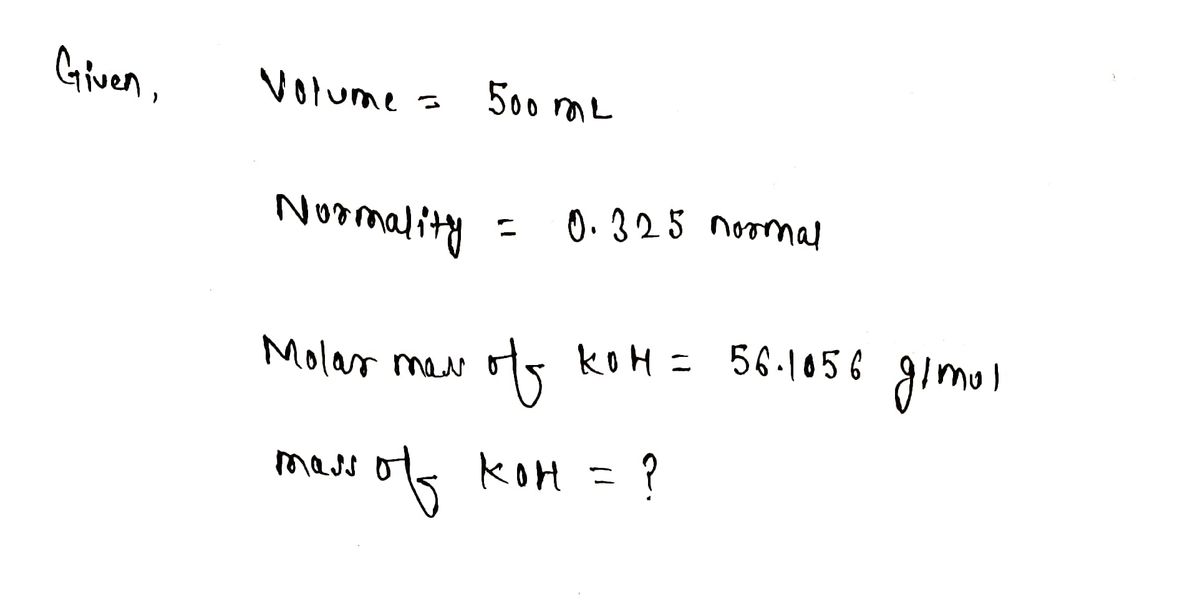 Given, Volume = 500 mL
Normality = 0.325 normal
Molar mass of KOH = 56.1056 g/mol
mass of KOH = ?